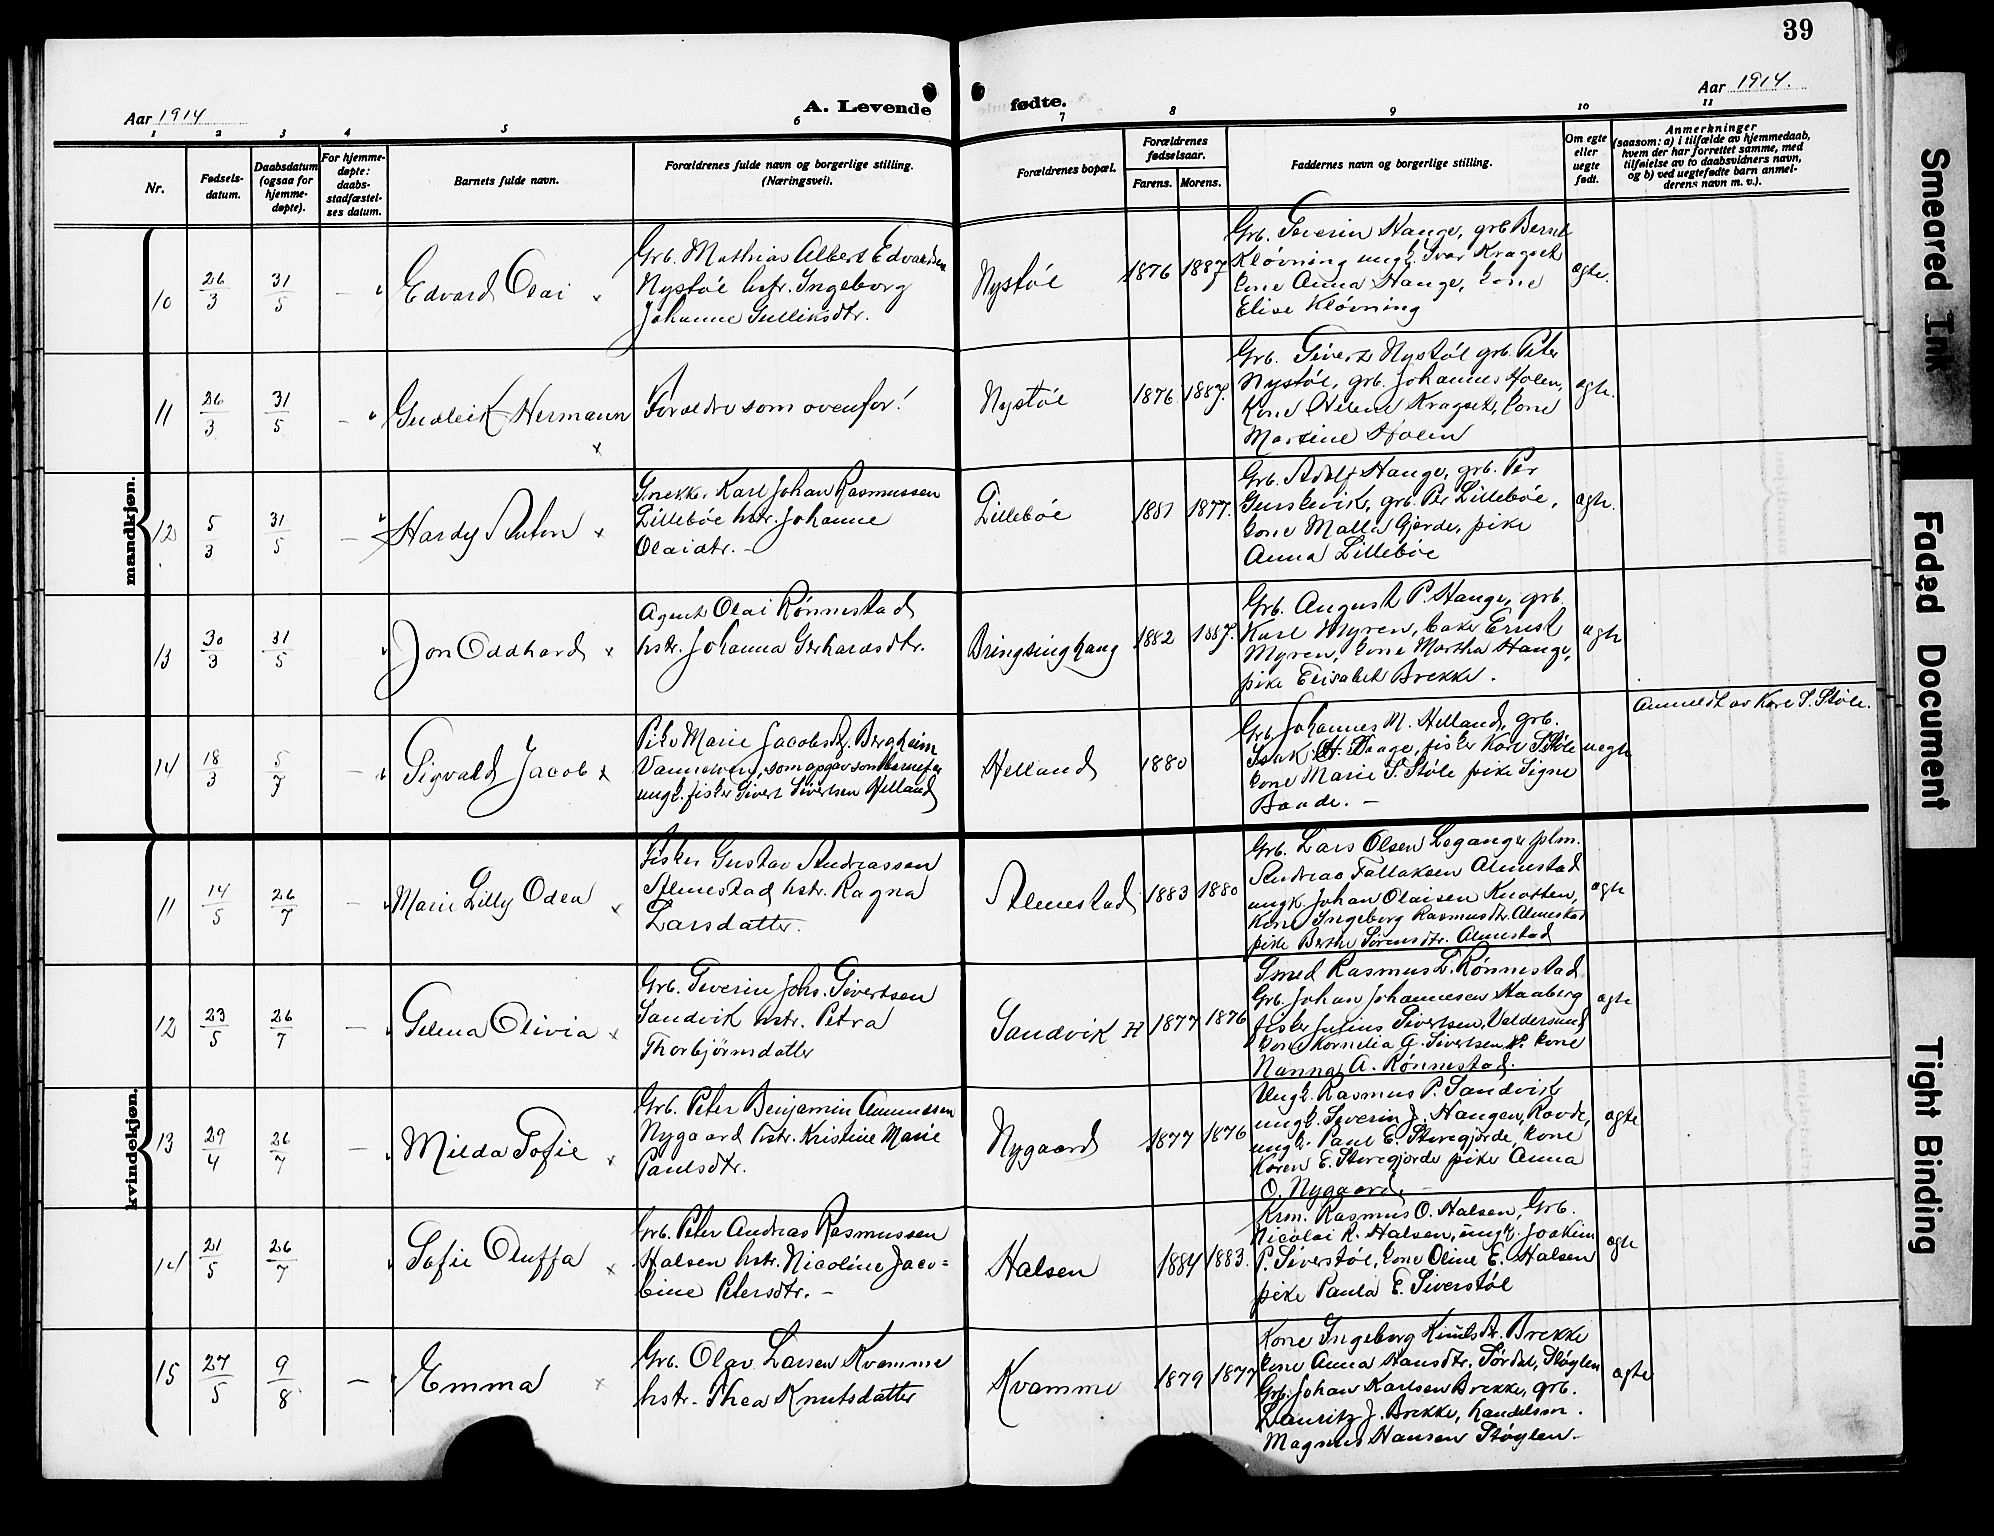 39
Aar 1914
A. Levende
fødte.
Aar 1914.
1 2 3 4 5 6 7 8 9 10 11
Nr.
Fødsels-
datum.
Daabsdatum
(ogsaa for
hjemme-
døpte).
For hjemme-
døpte:
daabs-
stadfæstel-
ses datum.
Barnets fulde navn.
Forældrenes fulde navn og borgerlige stilling.
(Næringsvei).
Forældrenes bopæl.
Forældrenes
fødselsaar.
Farens. Morens.
Faddernes navn og borgerlige stilling.
Om egte
eller
uegte
født.
Anmerkninger
(saasom: a) i tilfælde av hjemmedaab,
hvem der har forrettet samme, med
tilføielse av to daabsvidners navn,
og b) ved uegtefødte barn anmel-
derens navn m. v.).
mandkjøn.
10 26/3 31/5 — Edvard Olai
Grb. Mathias Albert Edvardsen
Nystøl hstr. Ingeborg
Johanne Gulliksdtr.
Nystøl 1876 1887
Grb. Severin Hauge, grb Bernt
Kløvning ungk. Ivar Kragset
kone Anna Hauge, kone
Elise Kløvning
egte.
11 26/3 31/5 — Gudleik Hermann
Forældre som ovenfor!
Nystøl 1876 1887.
Grb. Sivert Nystøl grb. Peter
Nystøl, grb. Johannes Holen,
Kone Helene Kragset, kone
Martine Holen
egte.
12 5/3 31/5 — Hardy Anton
Snekk. Karl Johan Rasmussen
Lillebøe hstr. Johanne
Olaidtr. —
Lillebøe 1881 1877.
Grb. Adolf Hauge, grb. Per
Gurskevik, grb. Per Lillebøe,
kone Malla Gjerde, pike
Anna Lillebøe
egte.
13 30/3 31/5 Jon Oddhard
Agent Olai Rønnestad
hstr. Johanna Gerhardsdtr.
Bringsinghaug 1882 1887.
Grb. August P. Hauge, grb.
Karl Myren, baker Ernst
Myren, kone Martha Hauge,
pike Elisabet Brekke.
egte
14 18/3 5/7 — Sigvald Jacob
Pike Marie Jacobsdt. Bergheim
Vannelven, som opgav som barnefar
ungk. fisker Sivert Sivertsen Helland
Helland 1880
Grb. Johannes M. Helland, grb.
Isak H. Haage, fisker Karl S. Støle
kone Marie S. Støle pike Signe
Baade. —
uegte
Anmeldt av Karl S. Støle.
kvindekjøn.
11 14/5 26/7 — Marie Lilly Odea
Fisker Gustav Andreassen
Almestad hstr. Ragna
Larsdatter.
Almestad 1883 1880
Grb. Lars Olsen Leganger plm.
Andreas Fallaksen Almestad
ungk. Johan Olaisen Knotten,
kone Ingeborg Rasmusdtr. Almestad
pike Berthe Sørensdtr. Almestad
egte
12 23/5 26/7 — Selma Olivia
Grb. Severin Johs. Sivertsen
Sandvik hstr. Petra
Thorbjørnsdatter
Sandvik H 1877 1876
Smed Rasmus L. Rønnestad
Grb. Johan Johannesen Haaberg
fisker Julius Sivertsen, Valdersund
kone Kornelia G. Sivertsen kone
Nanna A. Rønnestad.
egte
13 29/4 26/7 — Milda Sofie
Grb. Peter Benjamin Amundsen
Nygaard hstr. Kristine Marie
Paulsdtr.
Nygaard 1877 1876
Ungk. Rasmus P. Sandvik
ungk. Severin J. Haugen, Rovde,
ungk. Paul E. Storegjerde, kone
Karen E. Storegjerde pike Anna
O. Nygaard —
egte
14 21/5 26/7 Sofie Oluffa
Grb. Peter Andreas Rasmussen
Halsen hstr. Nicoline Jaco=
bine Petersdtr. —
Halsen 1884 1883.
Krm. Rasmus O. Halsen, Grb.
Nicolai R. Halsen, ungk. Joakim
P. Siverstøl, kone Oline E. Halsen
pike Paula E. Siverstøl
egte
15 27/5 9/8 — Emma
Grb. Olav Larsen Kvamme
hstr. Thea Knutsdatter
Kvamme 1879 1877
Kone Ingeborg Knutsdt. Brekke
kone Anna Hansdtr. Sørdal, Støylen
Grb. Johan Karlsen Brekke, grb.
Lauritz J. Brekke, handelsm.
Magnus Hansen Støylen.
egte
Smeared Ink
Faded Document
Tight Binding